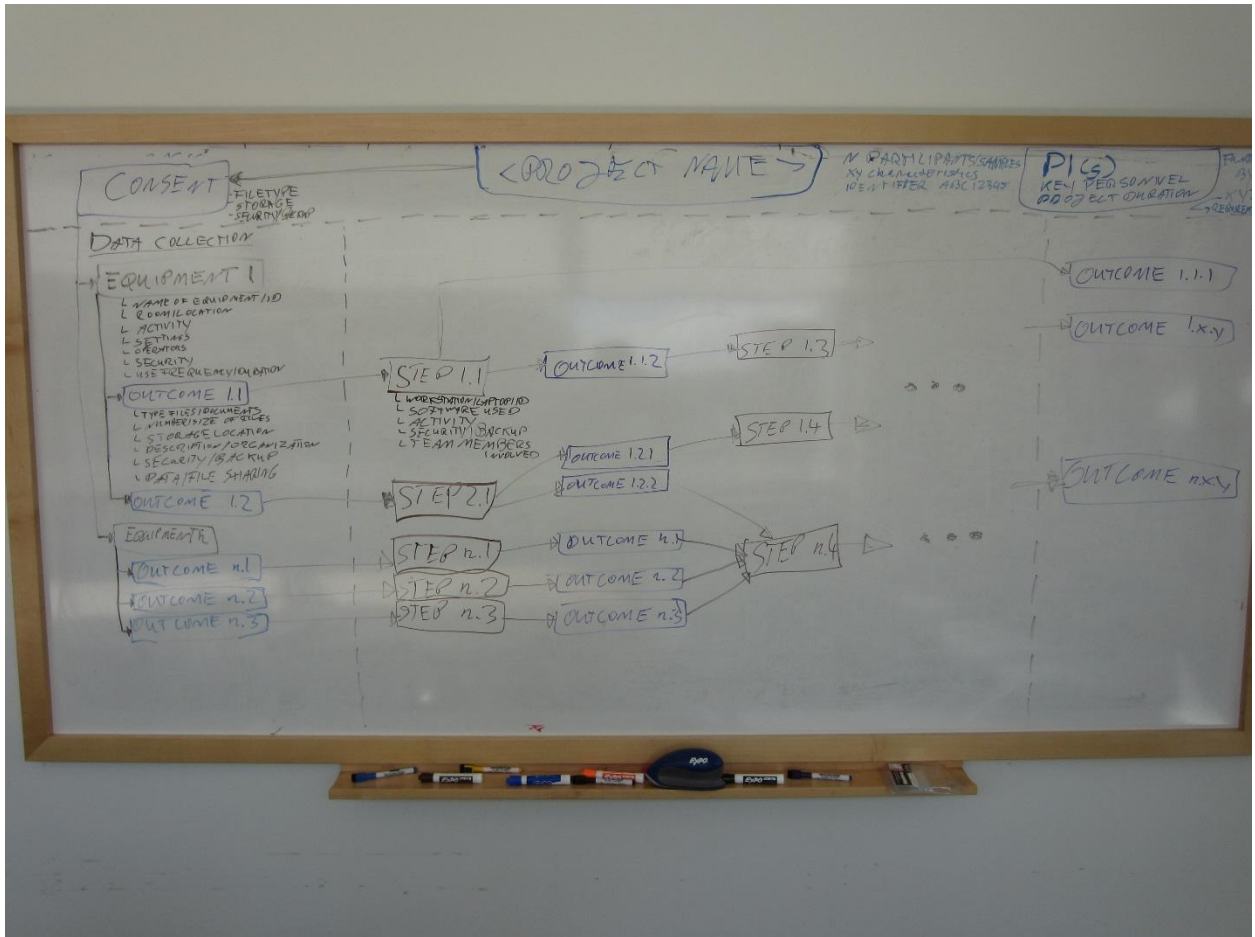 CONSENT
- FILETYPE
- STORAGE
- SECURITY/BACKUP
<PROJECT NAME>
N PARTICIPANTS/SAMPLES
XY characteristics
IDENTIFIER ABC12345
PI(s)
KEY PERSONNEL
PROJECT DURATION
BY
DATA COLLECTION
EQUIPMENT 1
L NAME OF EQUIPMENT/ID
L ROOM/LOCATION
L ACTIVITY
L SETTINGS
L OPERATORS
L SECURITY
L USE FREQUENCY/DURATION
OUTCOME 1.1
L TYPE FILES/DOCUMENTS
L NUMBER/SIZE OF FILES
L STORAGE LOCATION
L DESCRIPTION/ORGANIZATION
L SECURITY/BACKUP
L DATA/FILE SHARING
OUTCOME 1.2
EQUIPMENT
OUTCOME n.1
OUTCOME n.2
OUTCOME n.3
STEP 1.1
L WORKSTATION/LAPTOP/ID
L SOFTWARE USED
L ACTIVITY
L SECURITY/BACKUP
L TEAM MEMBERS
INVOLVED
STEP 2.1
STEP n.1
STEP n.2
STEP n.3
OUTCOME 1.1.2
OUTCOME 1.2.1
OUTCOME 1.2.2
OUTCOME n.1
OUTCOME n.2
OUTCOME n.3
STEP 1.3
STEP 1.4
STEP n.4
OUTCOME 1.1.1
OUTCOME 1.x.y
OUTCOME n.x.y
EXPO
EXPO
EXPO